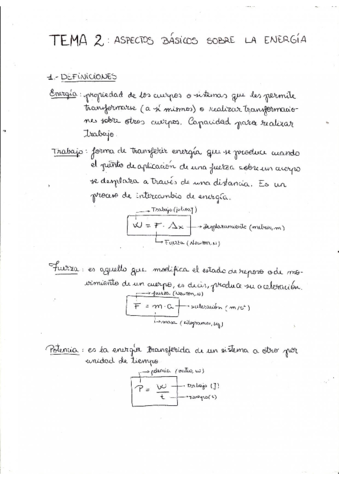 TEMA 2: ASPECTOS BÁSICOS SOBRE LA ENERGÍA
1.- DEFINICIONES
Energía: propiedad de los cuerpos o sistemas que les permite
transformarse (a sí mismos) o realizar transformacio-
nes sobre otros cuerpos. Capacidad para realizar
trabajo.
Trabajo: forma de transferir energía que se produce cuando
el punto de aplicación de una fuerza sobre un cuerpo
se desplaza a través de una distancia. Es un
proceso de intercambio de energía.
Trabajo (julios, J)
W = F · Δx
Desplazamiento (metros, m)
Fuerza (Newton, N)
Fuerza: es aquello que modifica el estado de reposo o de mo-
vimiento de un cuerpo, es decir, produce su aceleración.
fuerza (Newton, N)
F = m · a
aceleración (m/s²)
masa (kilogramos, kg)
Potencia: es la energía transferida de un sistema a otro por
unidad de tiempo
potencia (watios, W)
P = W/t
trabajo (J)
tiempo (s)